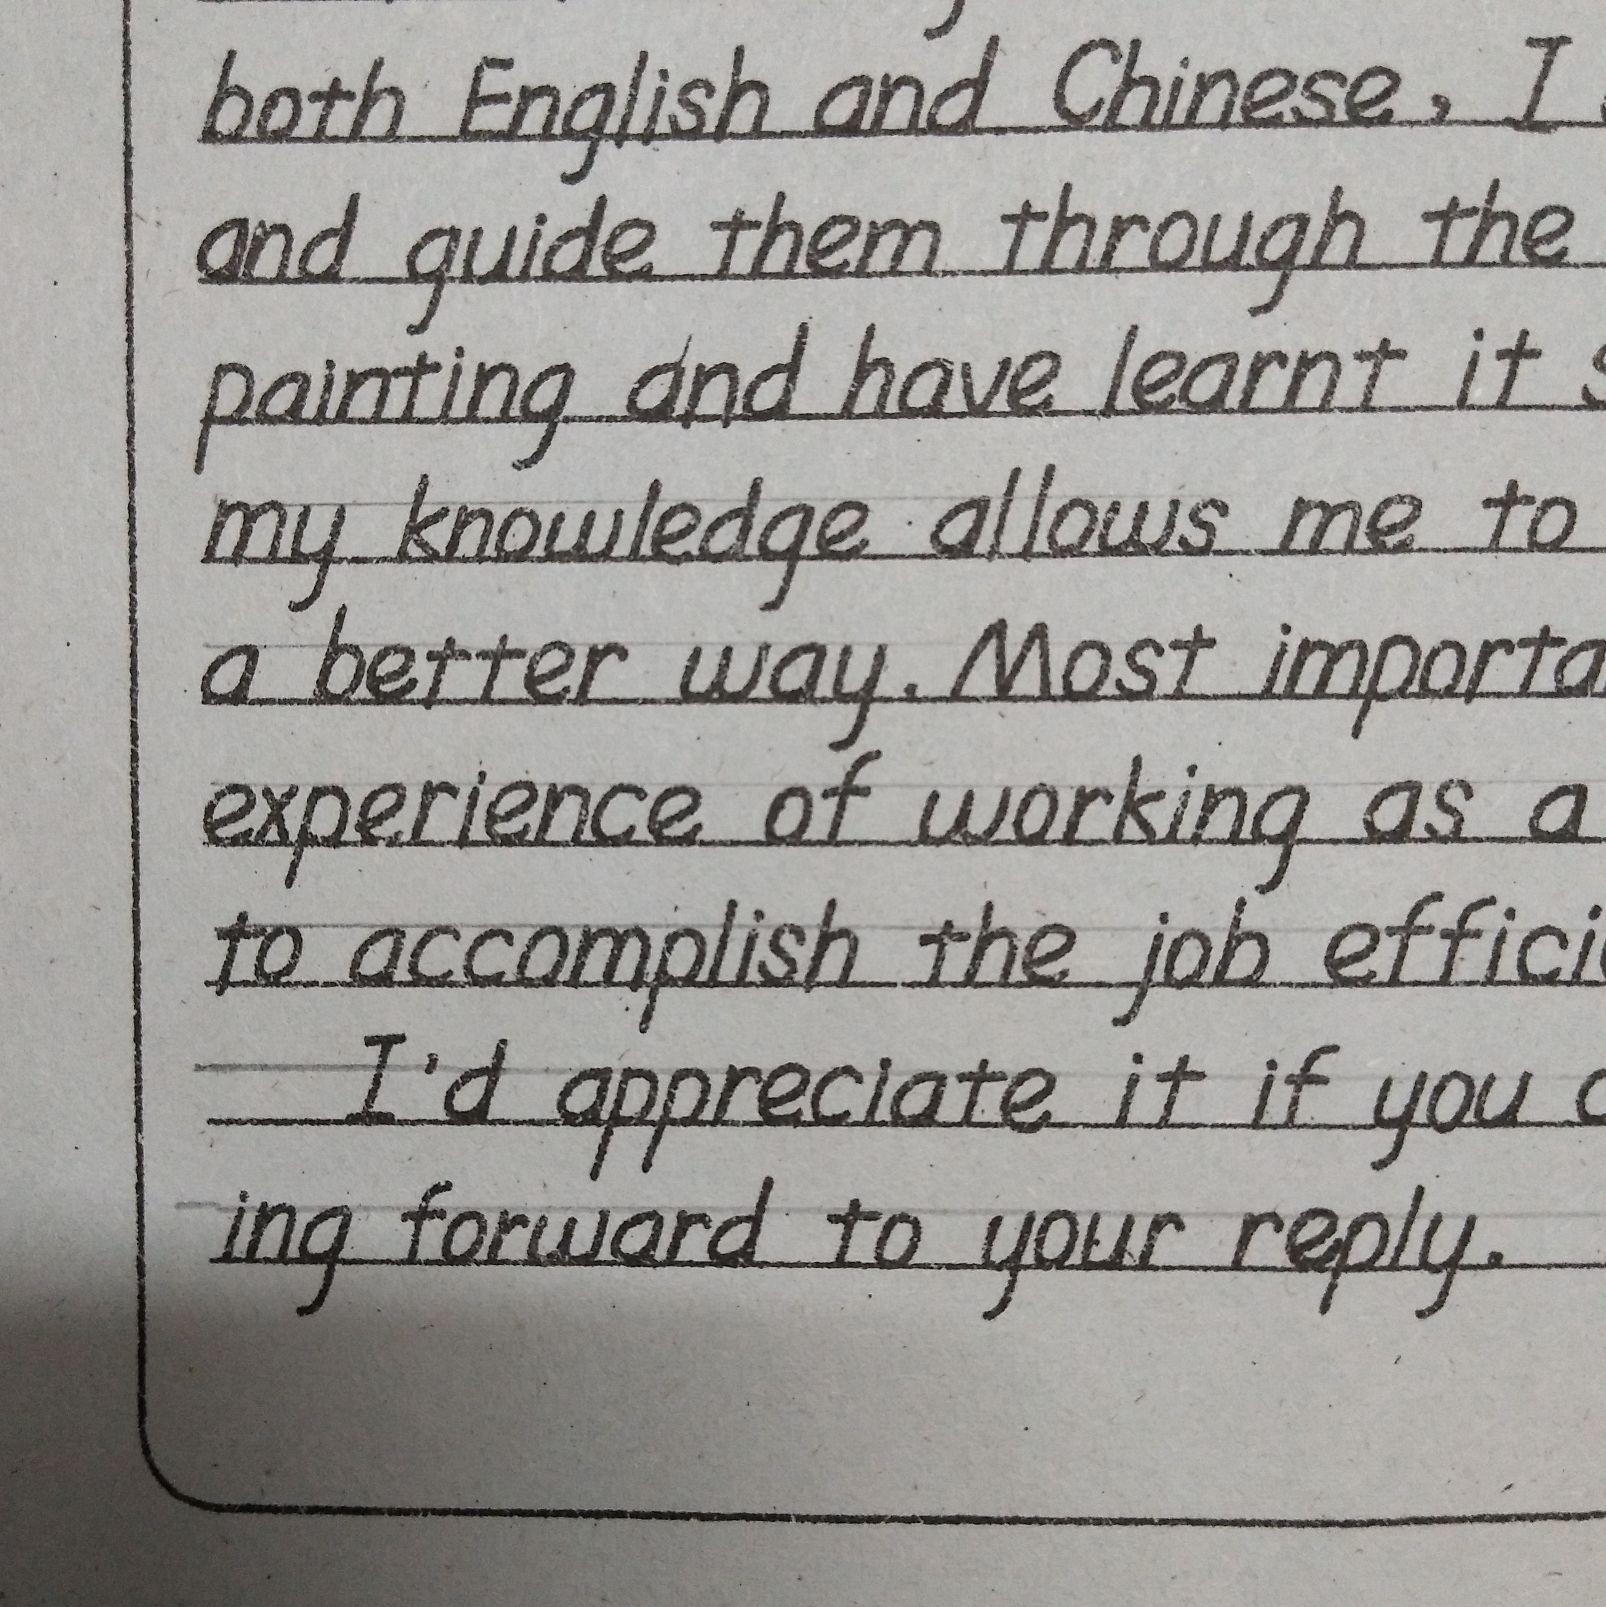 both English and Chinese, I
and guide them through the
painting and have learnt it
my knowledge allows me to
a better way. Most
experience of working as a
to accomplish the job
I'd appreciate it if you
ing forward to your reply.